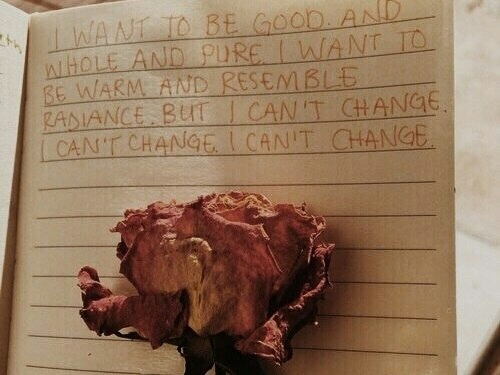 I WANT TO BE GOOD. AND
WHOLE AND PURE. I WANT TO
BE WARM AND RESEMBLE
RADIANCE. BUT I CAN'T CHANGE.
I CAN'T CHANGE. I CAN'T CHANGE.